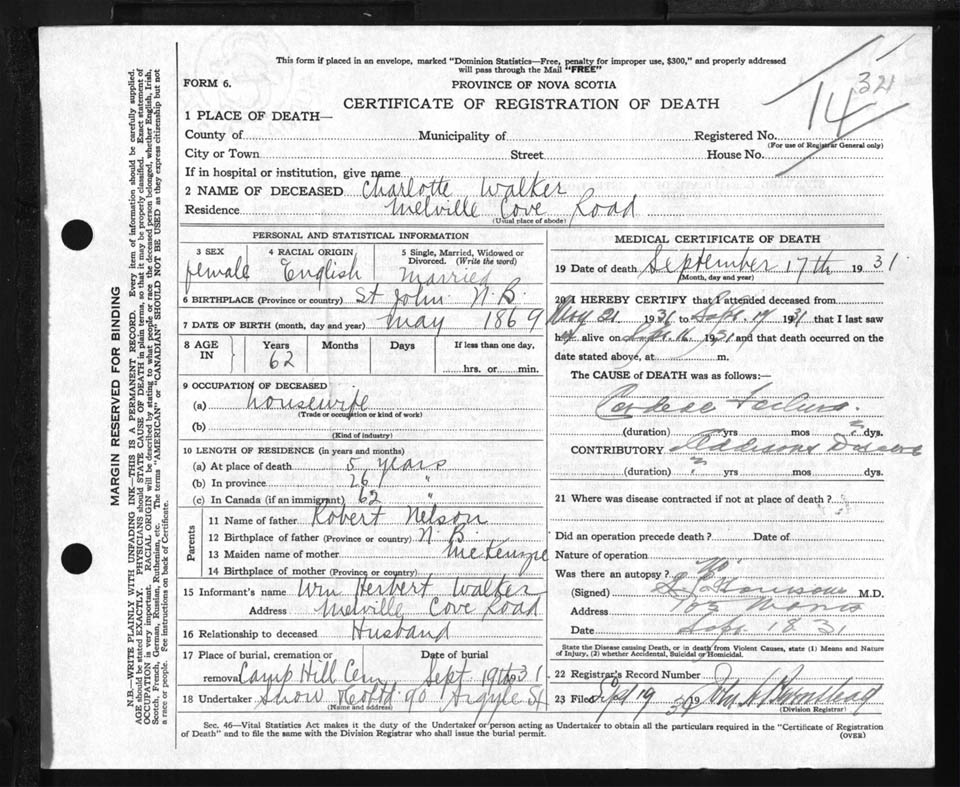 This form if placed in an envelope, marked "Dominion Statistics—Free, penalty for improper use, $300," and properly addressed
will pass through the Mail "FREE"
FORM 6.
PROVINCE OF NOVA SCOTIA
CERTIFICATE OF REGISTRATION OF DEATH
14 32
1 PLACE OF DEATH—
County of Municipality of Registered No.
(For use of Registrar General only)
City or Town Street House No.
If in hospital or institution, give name
2 NAME OF DECEASED Charlotte Walker
Residence Melville Cove Road
(Usual place of abode)
MARGIN RESERVED FOR BINDING
N.B.—WRITE PLAINLY WITH UNFADING INK—THIS IS A PERMANENT RECORD. Every item of information should be carefully supplied.
AGE should be stated EXACTLY. PHYSICIANS should STATE CAUSE OF DEATH in plain terms, so that it may be properly classified. Exact statement of
OCCUPATION is very important. RACIAL ORIGIN will be described by stating to what people or race the deceased person belonged, whether English, Irish,
Scotch, French, German, Russian, Ruthenian, etc. The terms "AMERICAN" or "CANADIAN" SHOULD NOT BE USED as they express citizenship but not
a race or people. See instructions on back of Certificate.
PERSONAL AND STATISTICAL INFORMATION
3 SEX 4 RACIAL ORIGIN 5 Single, Married, Widowed or
Divorced. (Write the word)
female English Married
6 BIRTHPLACE (Province or country) St John N.B.
7 DATE OF BIRTH (month, day and year) May 1869
8 AGE IN Years Months Days If less than one day,
62 hrs. or min.
9 OCCUPATION OF DECEASED
(a) housewife
(Trade or occupation or kind of work)
(b)
(Kind of industry)
10 LENGTH OF RESIDENCE (in years and months)
(a) At place of death 5 years
(b) In province 26 "
(c) In Canada (if an immigrant) 62 "
Parents
11 Name of father Robert Nelson
12 Birthplace of father (Province or country) N.B.
13 Maiden name of mother McKenzie
14 Birthplace of mother (Province or country)
15 Informant's name Wm Herbert Walker
Address Melville Cove Road
16 Relationship to deceased Husband
17 Place of burial, cremation or Date of burial
removal Camp Hill Cem Sept 19th 31
18 Undertaker Snow 90 Argyle St
(Name and address)
MEDICAL CERTIFICATE OF DEATH
19 Date of death September 17th 1931
(Month, day and year)
20 I HEREBY CERTIFY that I attended deceased from
May 21 1931 to Sept. 17 1931 that I last saw
her alive on Sept. 16 1931 and that death occurred on the
date stated above, at m.
The CAUSE of DEATH was as follows:—
Cardiac Failure
(duration) yrs mos dys.
CONTRIBUTORY Addisons Disease
(duration) yrs mos dys.
21 Where was disease contracted if not at place of death?
Did an operation precede death? Date of
Nature of operation
Was there an autopsy? No
(Signed) M.D.
Address
Date Sept. 18 31
State the Disease causing Death, or in death from Violent Causes, state (1) Means and Nature
of Injury, (2) whether Accidental, Suicidal or Homicidal.
22 Registrar's Record Number
23 Filed Sept 19 19
(Division Registrar)
Sec. 46—Vital Statistics Act makes it the duty of the Undertaker or person acting as Undertaker to obtain all the particulars required in the "Certificate of Registration
of Death" and to file the same with the Division Registrar who shall issue the burial permit.
(OVER)